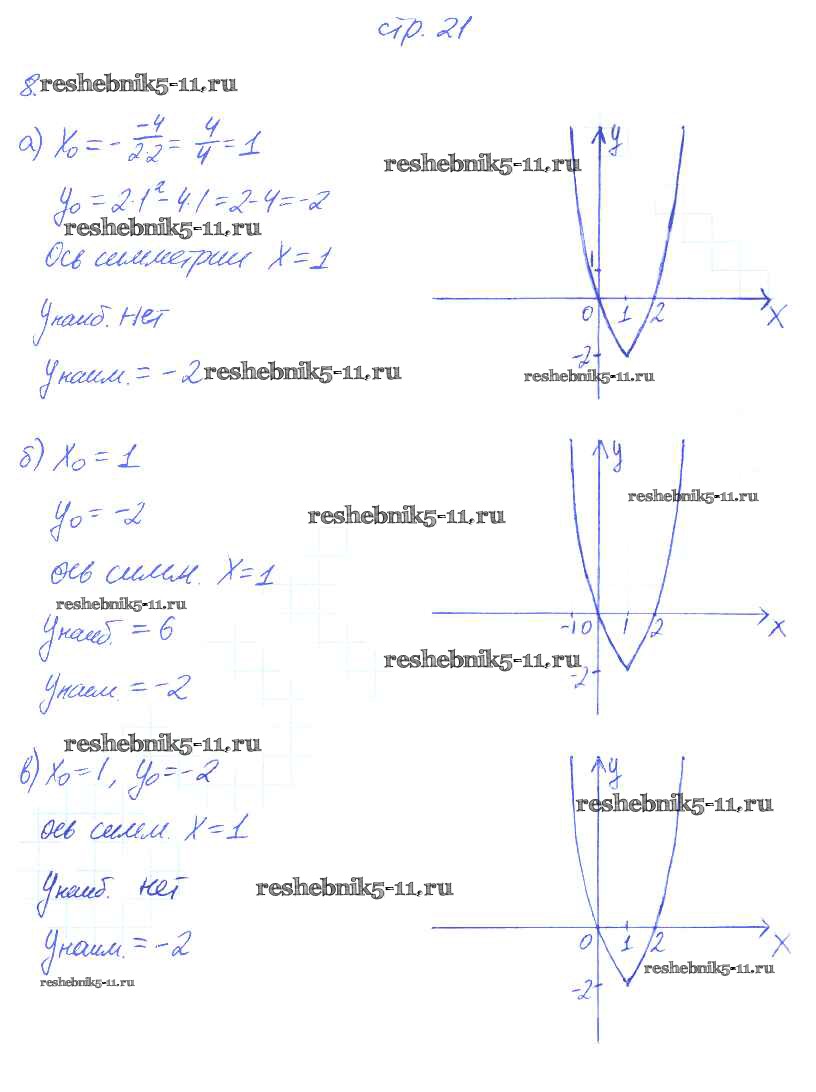 стр. 21
8. reshebnik5-11.ru
а) x₀ = - -4/2·2 = 4/4 = 1
reshebnik5-11.ru
y₀ = 2·1² - 4·1 = 2-4 = -2
reshebnik5-11.ru
Ось симметрии x = 1
yнаиб. нет
yнаим. = -2 reshebnik5-11.ru
y
1
0 1 2 x
-2
reshebnik5-11.ru
б) x₀ = 1
y₀ = -2
reshebnik5-11.ru
ось симм. x = 1
reshebnik5-11.ru
yнаиб. = 6
yнаем. = -2
y
reshebnik5-11.ru
-1 0 1 2 x
reshebnik5-11.ru
-2
reshebnik5-11.ru
в) x₀ = 1, y₀ = -2
ось симм. x = 1
yнаиб. нет
reshebnik5-11.ru
yнаим. = -2
reshebnik5-11.ru
y
reshebnik5-11.ru
0 1 2 x
reshebnik5-11.ru
-2